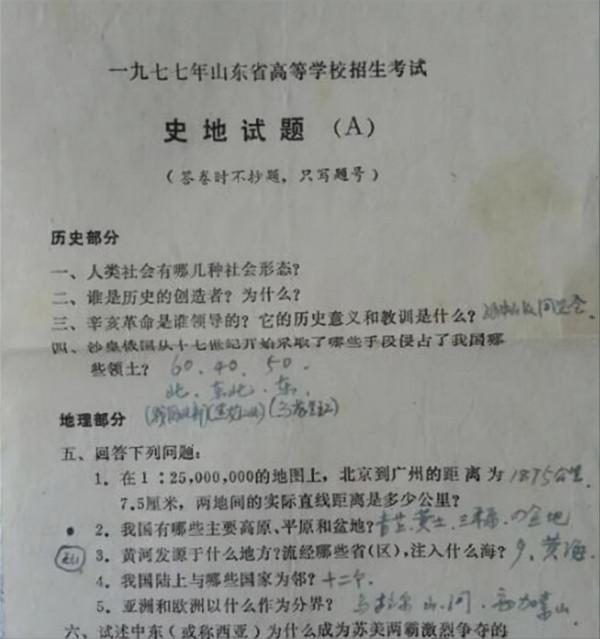 一九七七年山东省高等学校招生考试
史地试题（A）
（答卷时不抄题，只写题号）
历史部分
一、人类社会有哪几种社会形态？
二、谁是历史的创造者？为什么？
三、辛亥革命是谁领导的？它的历史意义和教训是什么？ 同盟会
四、沙皇俄国从十七世纪开始采取了哪些手段侵占了我国哪
些领土？ 60. 40. 50.
北. 东北. 东.
地理部分
五、回答下列问题：
1．在1：25,000,000的地图上，北京到广州的距离为 1875公里
7.5厘米，两地间的实际直线距离是多少公里？
2．我国有哪些主要高原、平原和盆地？ 青藏、黄土、 盆地
3．黄河发源于什么地方？流经哪些省（区），注入什么海？ 9、黄海
4．我国陆上与哪些国家为邻？ 十二个.
5．亚洲和欧洲以什么作为分界？ 乌拉尔山、河、高加索山
六、试述中东（或称西亚）为什么成为苏美两霸激烈争夺的